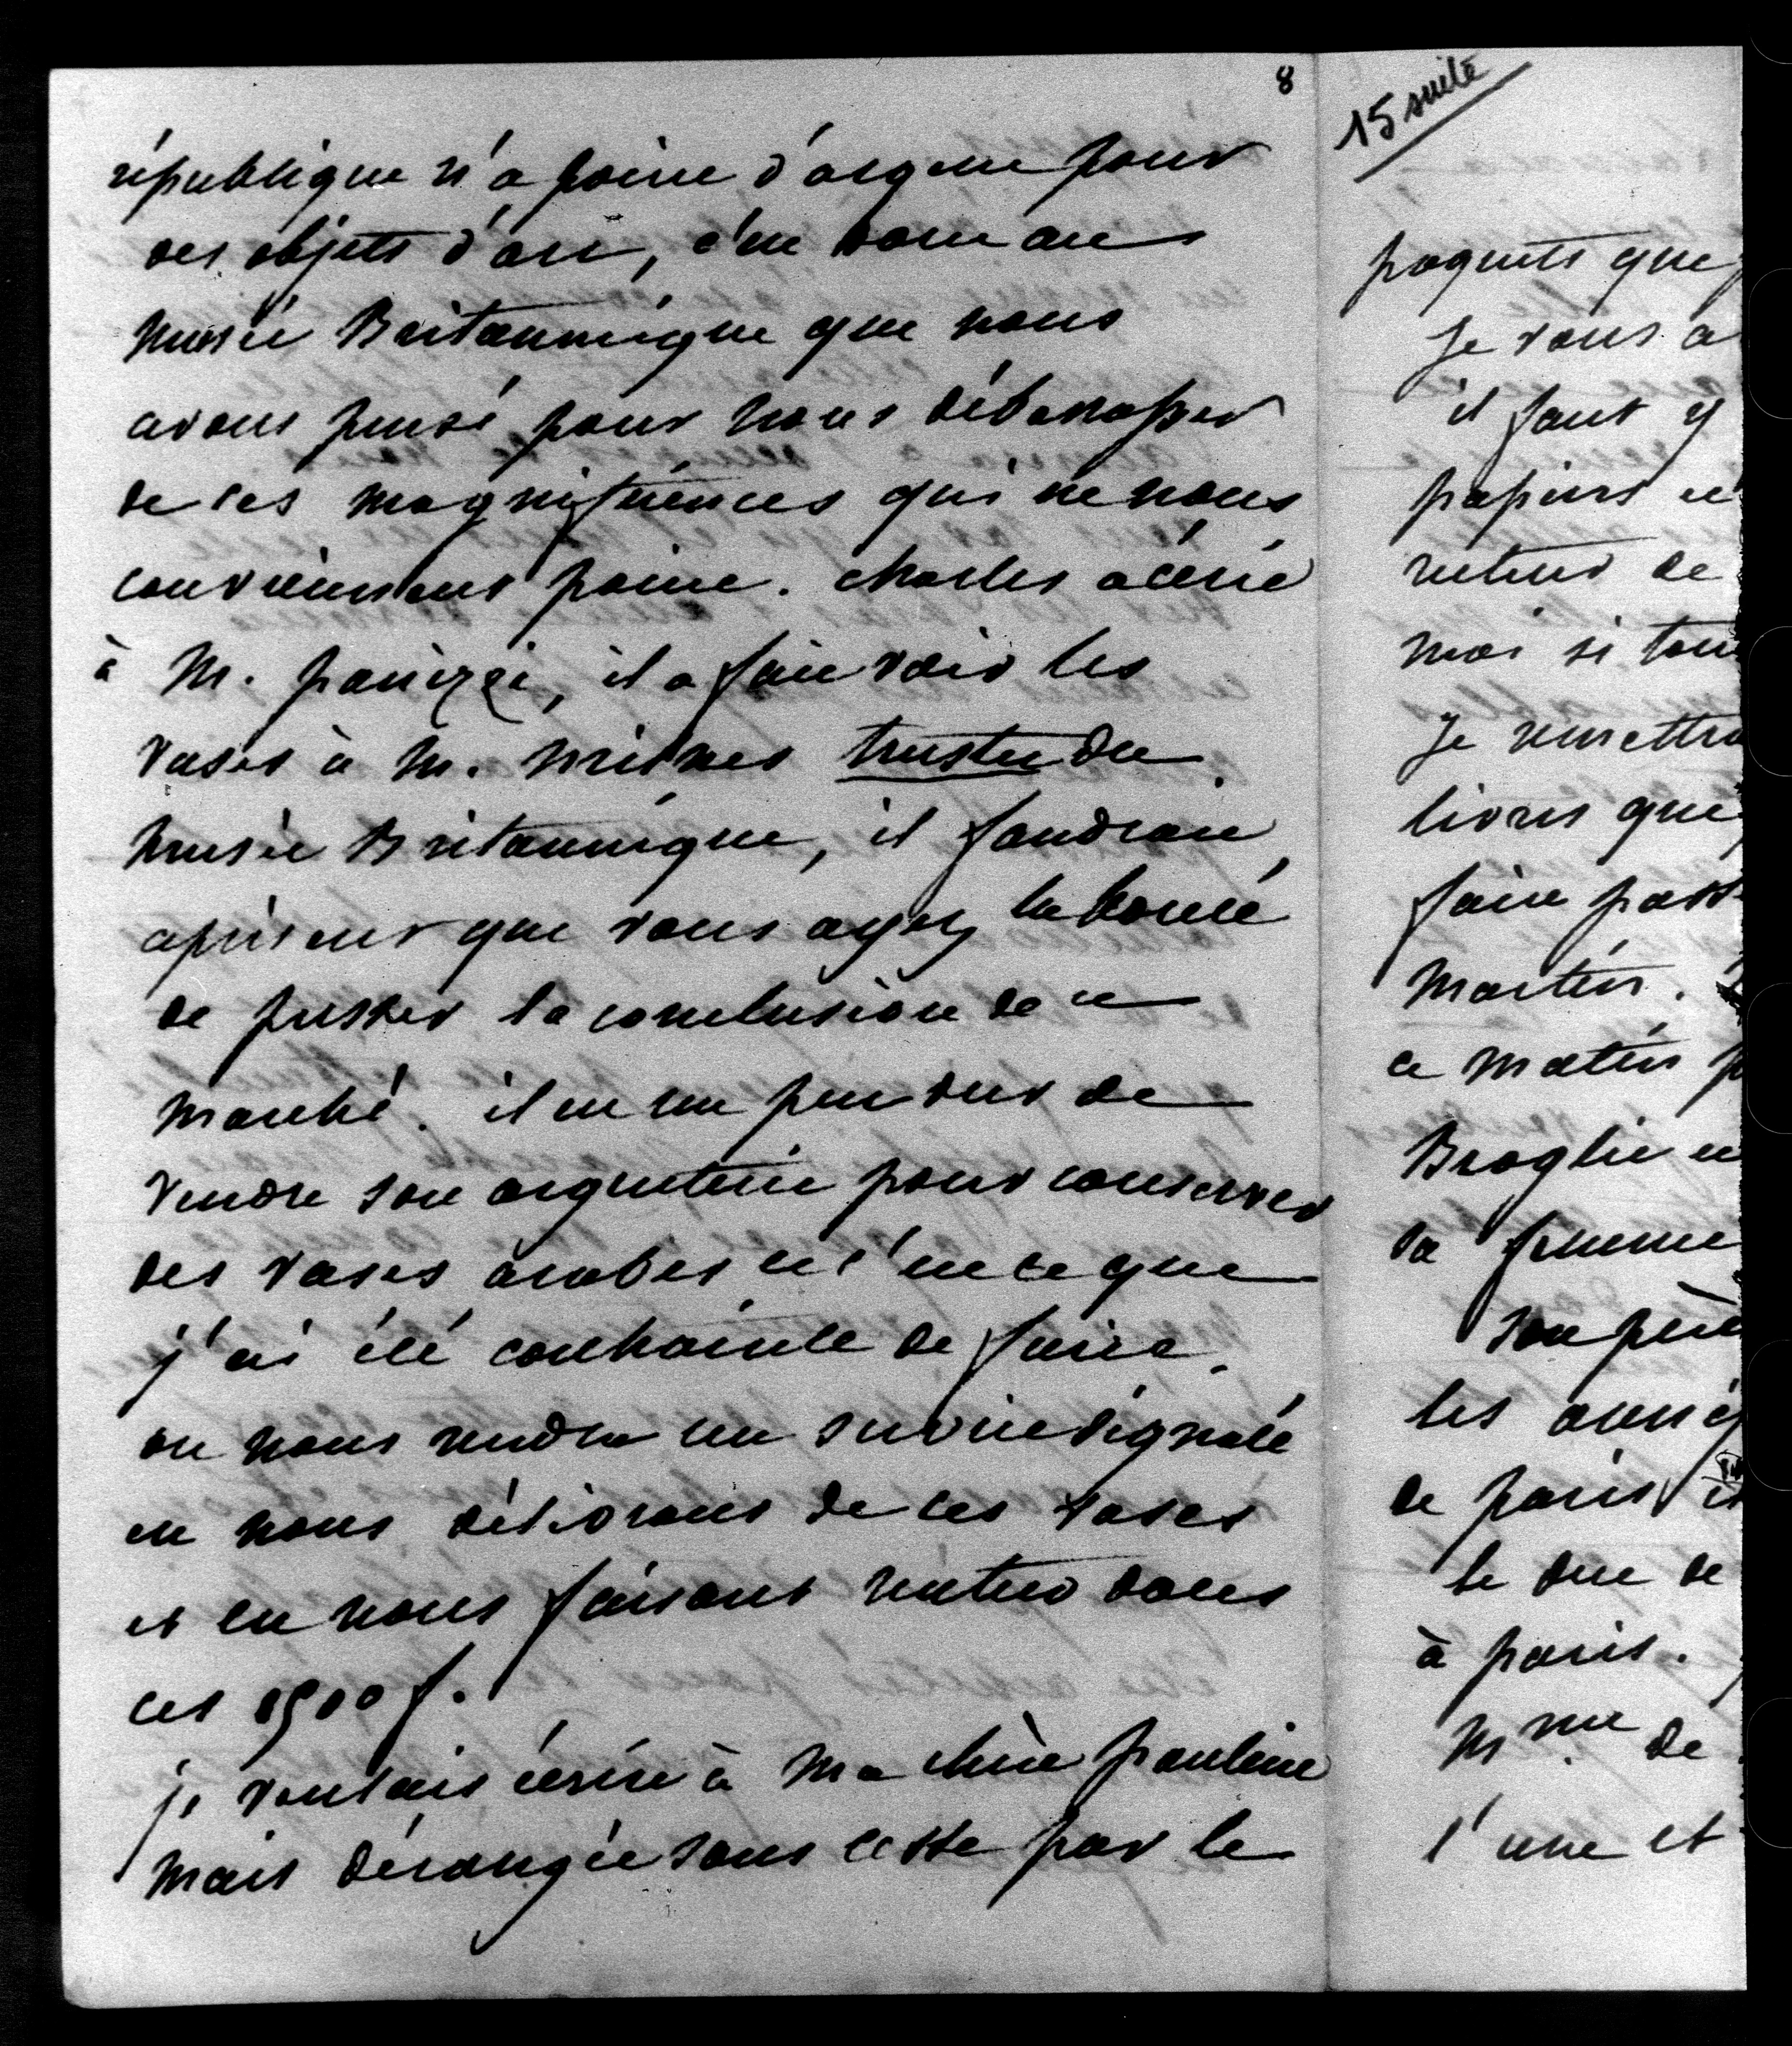 8
république n'a point d'argent pour
des objets d'art, c'est donc au
musée Britannique que nous
avons pensé pour nous débarrasser
de ces magnificences qui ne nous
conviennent point. Charles a écrit
à M. Panizzi, il a fait voir les
vases à M. Milnes trustee du
musée Britannique, il faudrait
à présent que vous ayez la bonté
de presser la conclusion de ce
marché. il est un peu dur de
vendre son argenterie pour conserver
des vases arabes et c'est ce que
j'ai été contrainte de faire.
on nous rendra un service signalé
en nous délivrant de ces vases
et en nous faisant rentrer dans
ces 8500 f.
je voulais écrire à ma chère Pauline
mais dérangée sans cesse par le
15 suite
paquets que
Je vous a
il faut y
papiers et
retour de
moi si tou
Je remettra
livres que
faire pass
Martin.
ce matin p
Broglie et
sa femme
son père
les
de Paris
le duc de
à Paris.
Mme de
l'une et